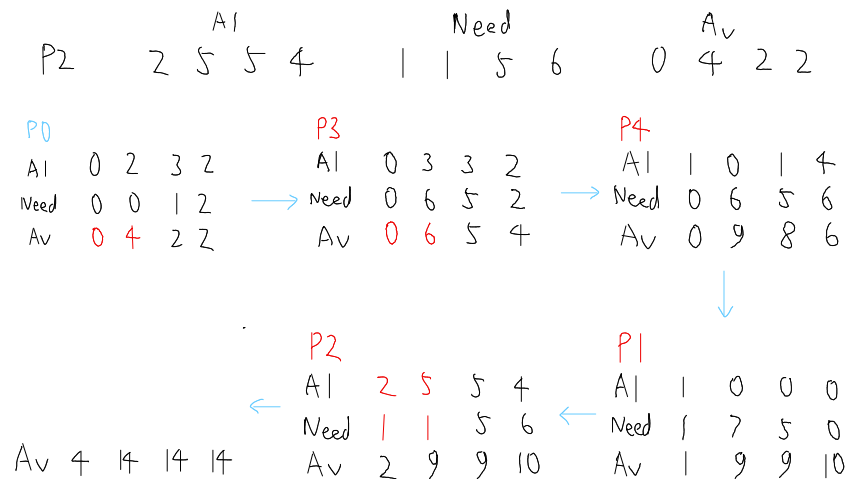 Al Need Av
P2 2 5 5 4 1 1 5 6 0 4 2 2
P0
Al 0 2 3 2
Need 0 0 1 2
Av 0 4 2 2
P3
Al 0 3 3 2
Need 0 6 5 2
Av 0 6 5 4
P4
Al 1 0 1 4
Need 0 6 5 6
Av 0 9 8 6
P1
Al 1 0 0 0
Need 1 7 5 0
Av 1 9 9 10
P2
Al 2 5 5 4
Need 1 1 5 6
Av 2 9 9 10
Av 4 14 14 14